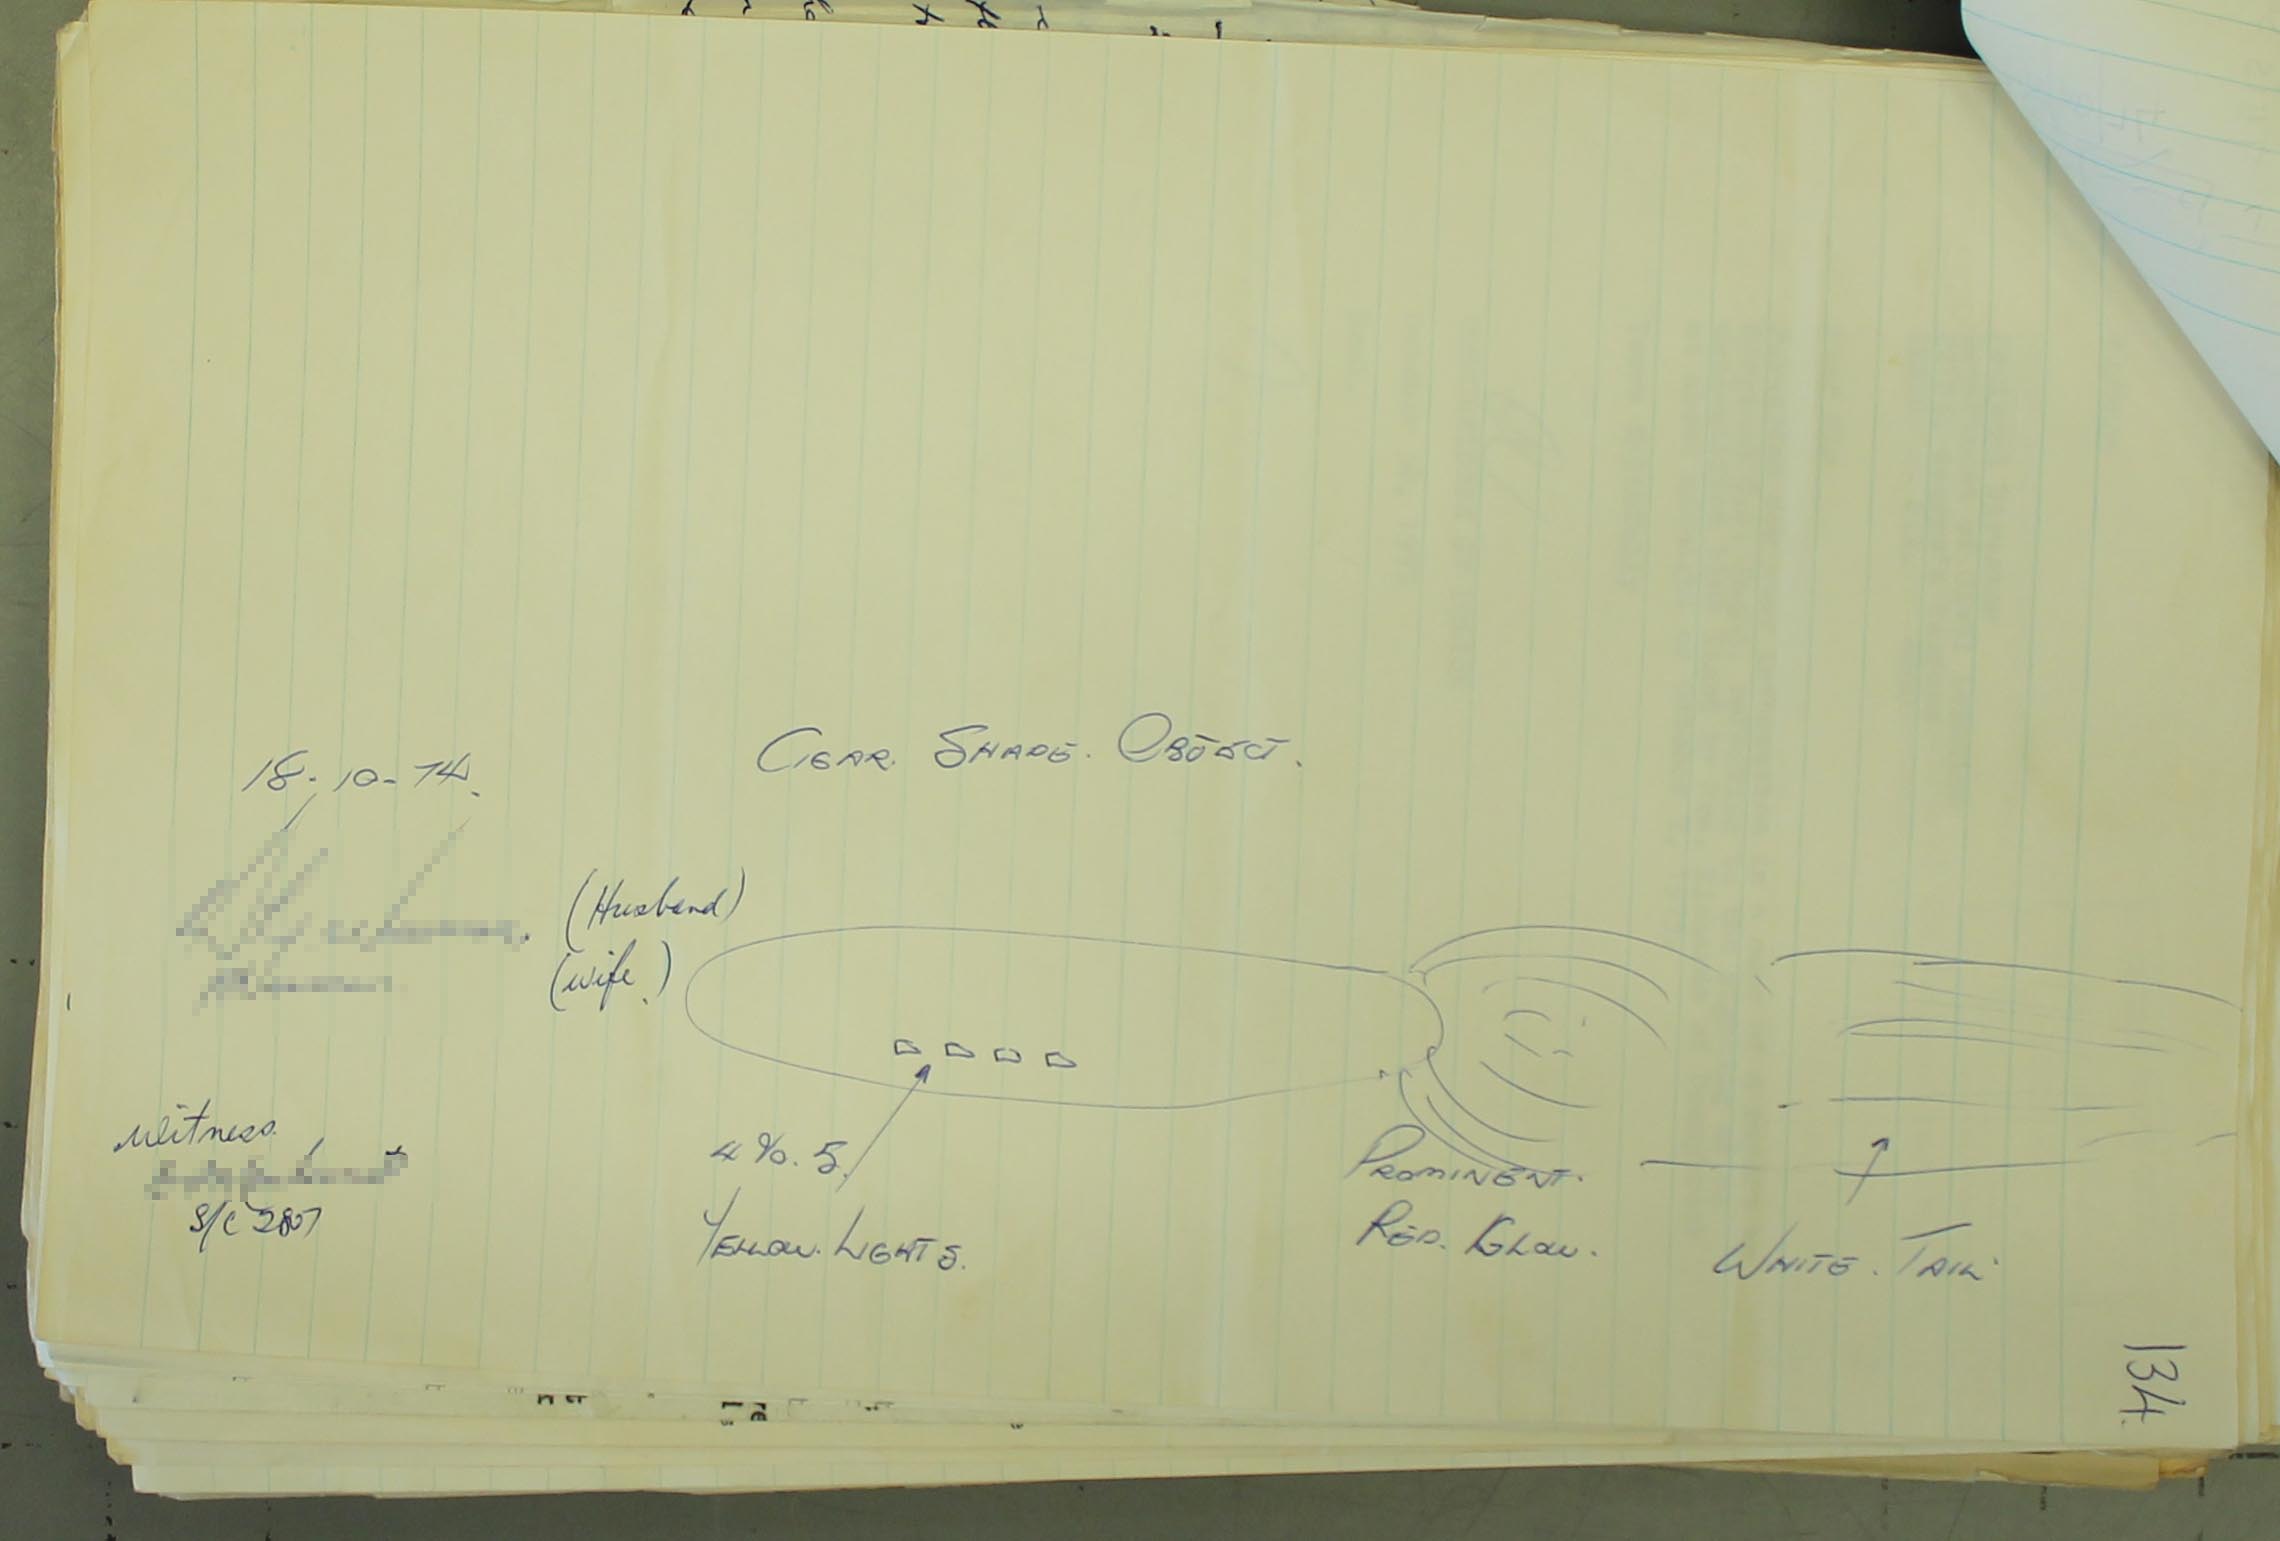 CIGAR. SHAPE. OBJECT.
18-10-74.
(Husband)
(Wife.)
Witness
S/C 2807
4 %. 5.
YELLOW. LIGHTS.
PROMINENT.
RED. GLOW.
WHITE. TAIL.
134